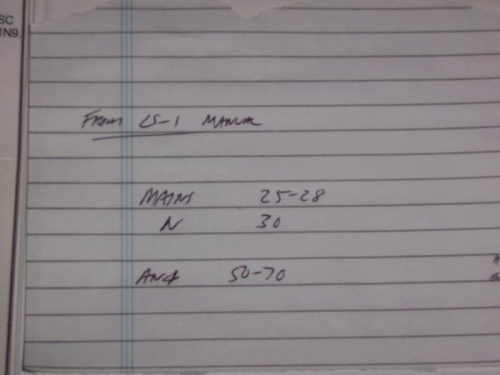 SC
IN9.
From LS-1 MANUAL
MAINS 25-28
N 30
50-70